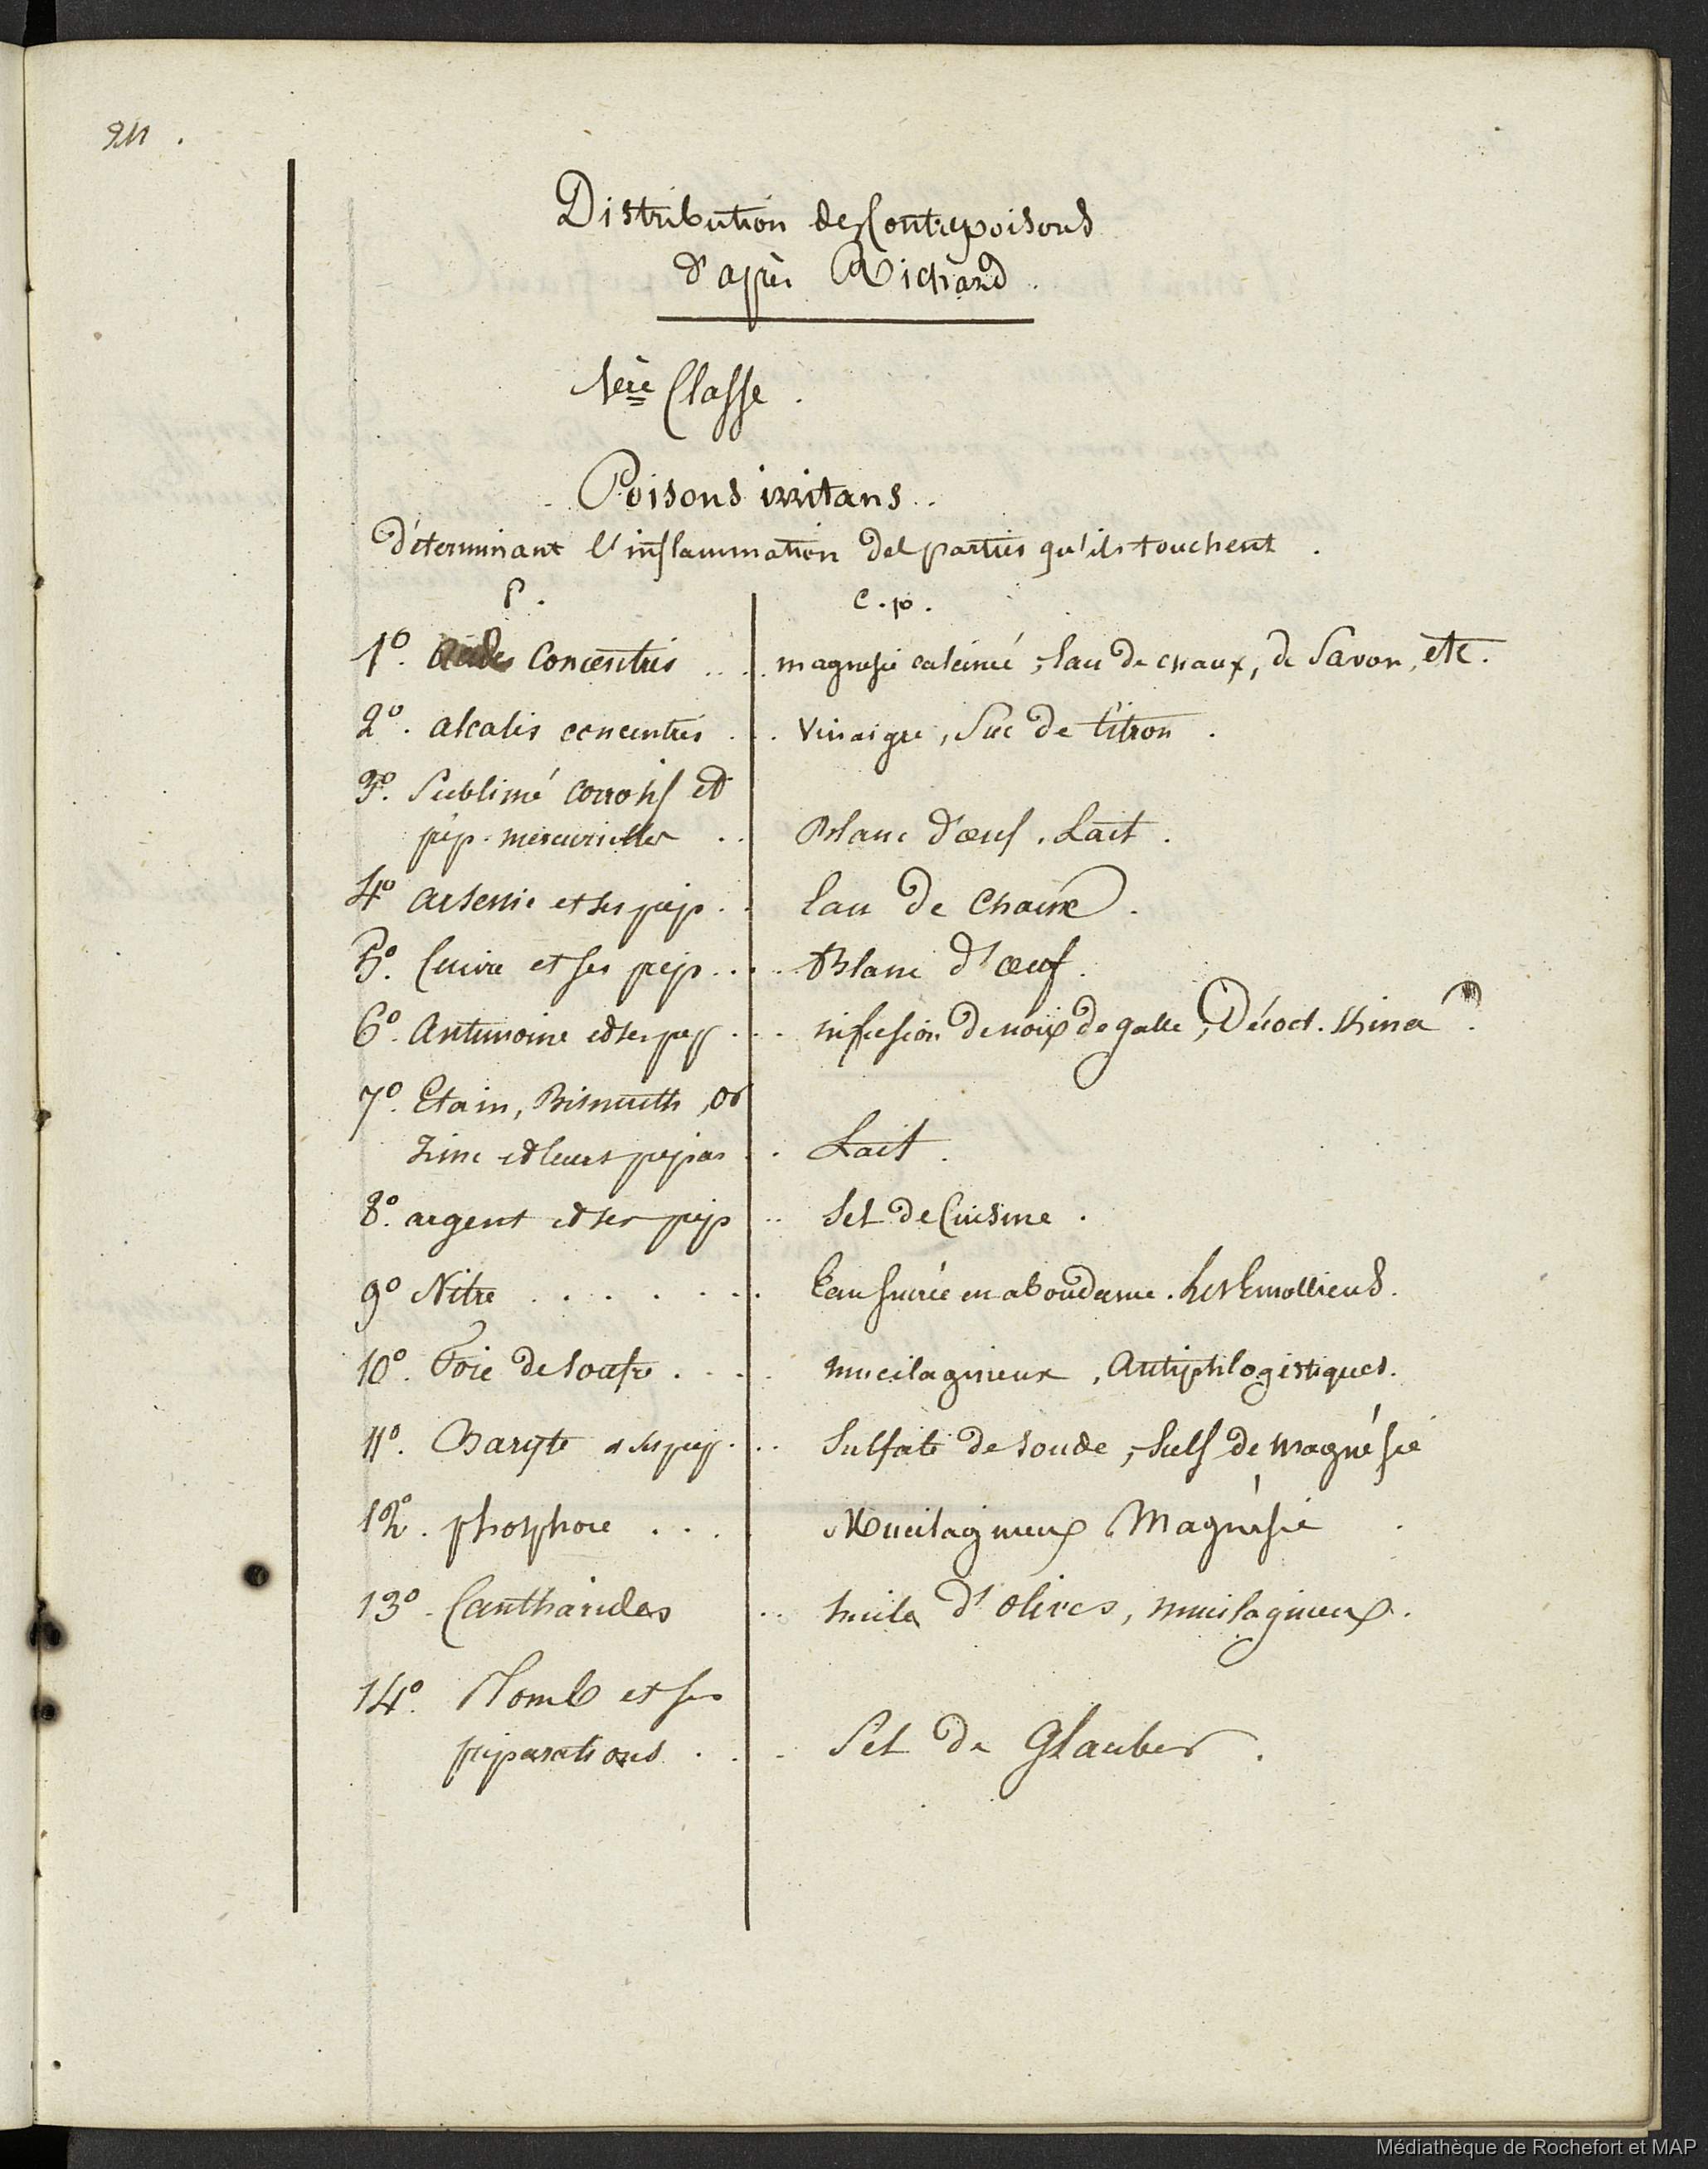 Distribution des Contrepoisons
d'après Richard.
1ère Classe.
Poisons irritans.
déterminant l'inflammation des parties qu'ils touchent.
P. c.p.
1º. acides concentrés .... magnésie calcinée, Eau de chaux, de Savon, etc.
2º. alcalis concentrés ... Vinaigre, Suc de Citron.
3º. Sublimé corrosif et
prép. mercurielles .. Blanc d'œuf. Lait.
4º arsenic et ses prép... Eau de Chaux.
5º. Cuivre et ses prép..... Blanc d'œuf.
6º. Antimoine et ses prép .... infusion de noix de galle, Décoct. Kina.
7º. Etain, Bismuth, or
Zinc et leurs prépar .. Lait.
8º. argent et ses prép .. Sel de Cuisine.
9º Nitre ........ Eau sucrée en abondance. Les Emolliens.
10º. Foie de soufre ..... mucilagineux, Antiphlogistiques.
11º. Baryte et ses prép.... Sulfate de soude, Sulf de magnésie
12º. phosphore .... Mucilagineux Magnésie.
13º. Cantharides .. huile d'olives, mucilagineux.
14º. Plomb et ses
préparations ... Sel de Glauber.
Médiathèque de Rochefort et MAP